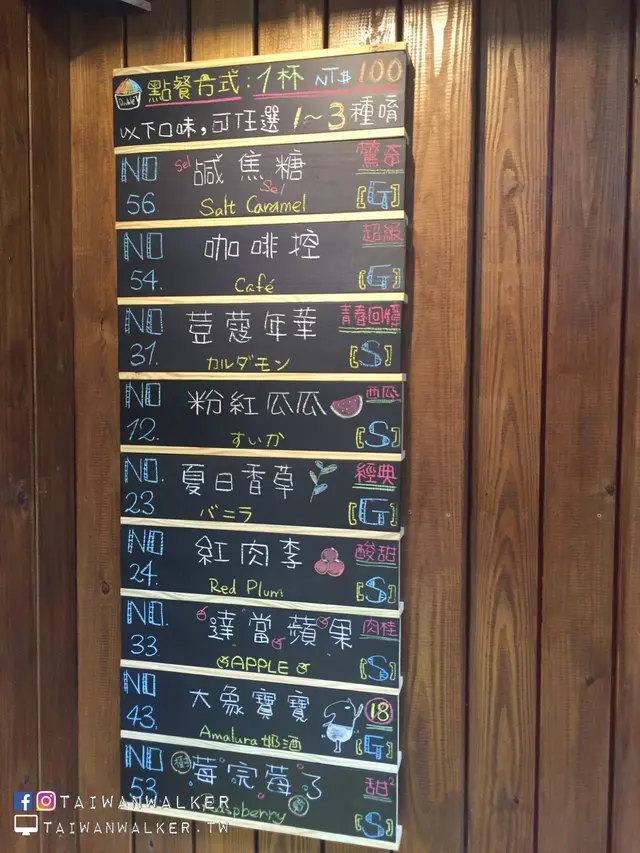 Double V
點餐方式：1杯 NT$100
以下口味，可任選 1～3 種唷
NO 56 Sel 鹹焦糖 Sel 驚奇
Salt Caramel [G]
NO 54. 咖啡控 超級
Café [G]
NO 31. 荳蔻年華 青春回憶
カルダモン [S]
NO 12. 粉紅瓜瓜 西瓜
すいか [S]
NO. 23 夏日香草 經典
バニラ [G]
NO 24. 紅肉李 酸甜
Red Plum [S]
NO. 33 達當蘋果 肉桂
APPLE [S]
NO 43. 大象寶寶 18
Amalura 奶酒 [G]
NO 53 莓完莓了 甜²
[S]
TAIWANWALKER
TAIWANWALKER.TW